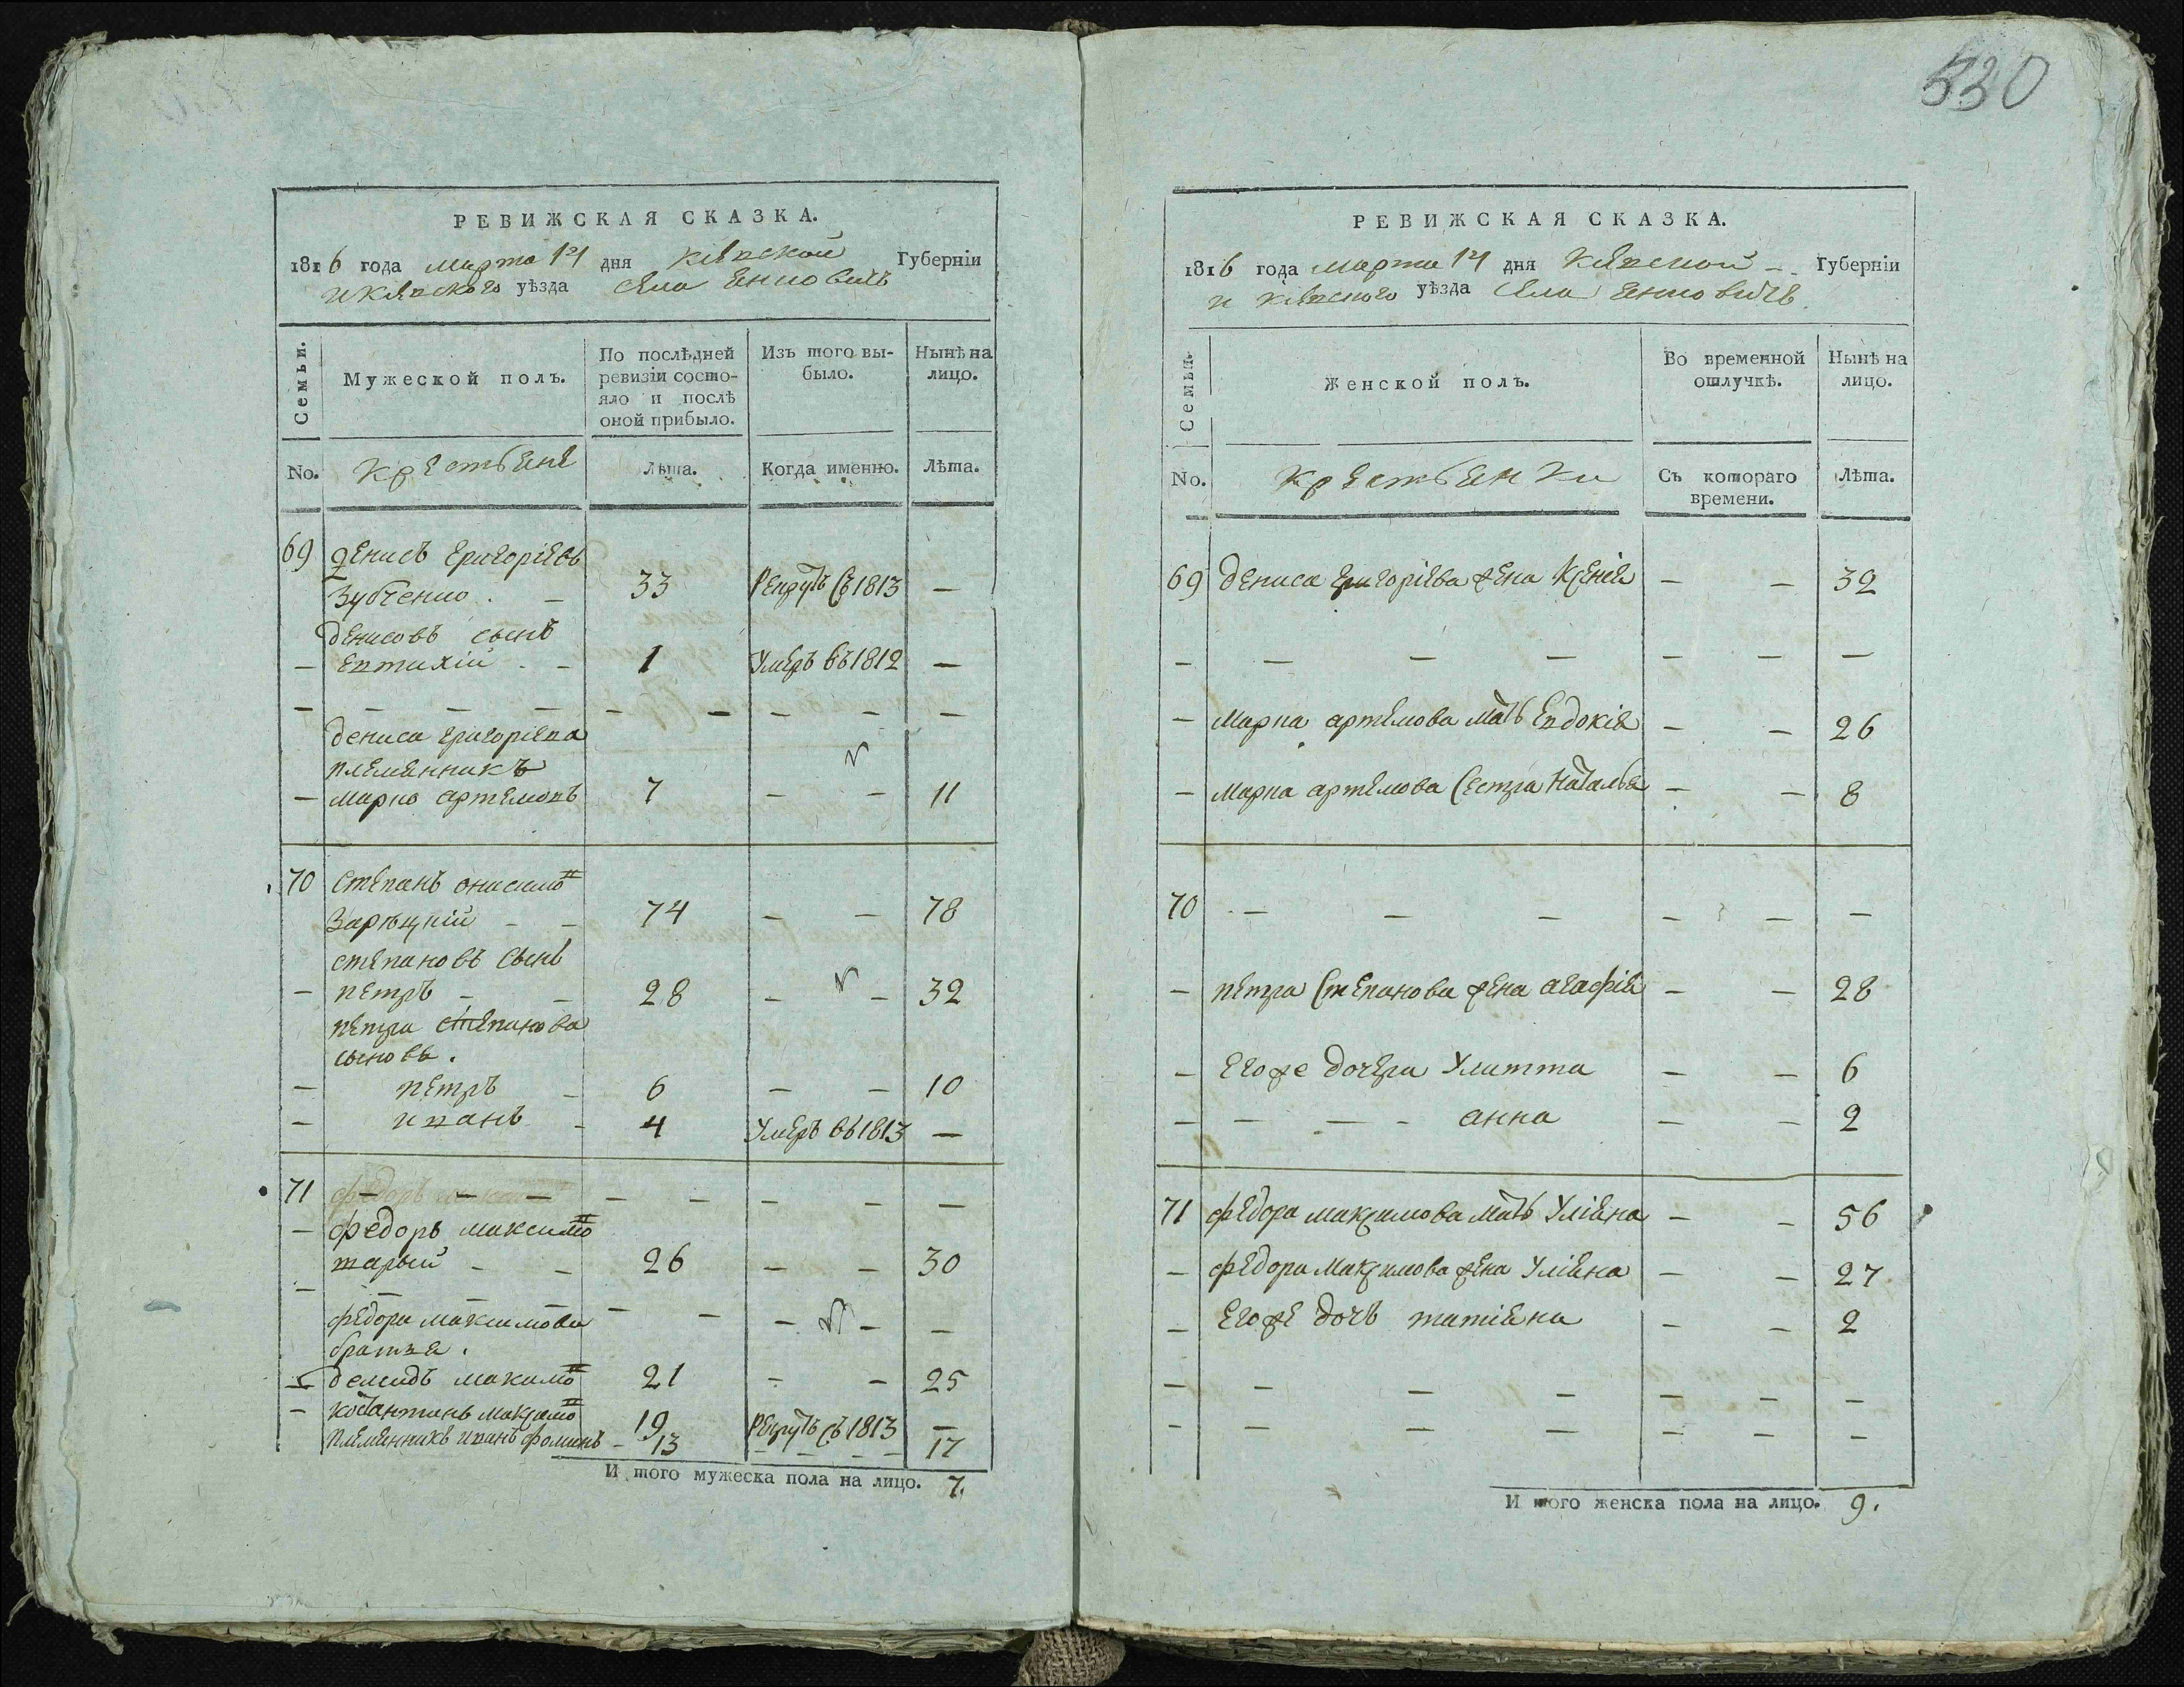 530
РЕВИЖСКАЯ СКАЗКА.
1816 года марта 14 дня Кіевской Губерніи
и Кіевского уѣзда села Янковичъ
Семьи.
Мужеской полъ.
По послѣдней ревизіи состояло и послѣ оной прибыло.
Изъ того выбыло.
Нынѣ на лицо.
No. крестьяне Лѣта. Когда именно. Лѣта.
69 Денисъ Григоріевъ
Зубченко . – 33 Рекрутъ съ 1813 –
Денисовъ сынъ
– Евтихій . – 1 Умеръ въ 1812 –
– – – – – – – – –
Дениса Григоріева
племянникъ
– Марко Артемовъ 7 – – 11
70 Степанъ Онисимов
Зарѣцкій – – 74 – – 78
Степановъ сынъ
– Петръ – – 28 – – 32
Петра Степанова
сыновя .
– Петръ – 6 – – 10
– Иванъ – 4 Умеръ въ 1813 –
71 – – – – – – – –
– Федоръ Максимов
– – 26 – – 30
– – – – – – – – –
Федора Максимова
братья .
– Демидъ Максимов 21 – – 25
– Костантинъ Максимов 19 Рекрутъ съ 1813 –
племянникъ Иванъ Фоминъ – 13 – – – – 17
И того мужеска пола на лицо. 7.
РЕВИЖСКАЯ СКАЗКА.
1816 года марта 14 дня Кіевской – Губерніи
и Кіевского уѣзда села Янковичъ.
Семьи.
Женской полъ.
Во временной отлучкѣ.
Нынѣ на лицо.
No. крестьянки Съ котораго времени. Лѣта.
69 Дениса Григоріева жена Ксенія – – 32
– – – – – – –
– Марка Артемова мать Евдокія – – 26
– Марка Артемова сестра Наталья – – 8
70 – – – – – –
– Петра Степанова жена Агафія – – 28
– Егоже дочери Улитта – – 6
– – – – Анна – – 2
71 Федора Максимова мать Уліяна – – 56
– Федора Максимова жена Уліяна – – 27
– Егоже дочь Татіяна – – 2
– – – – – – –
– – – – – – –
И того женска пола на лицо. 9.